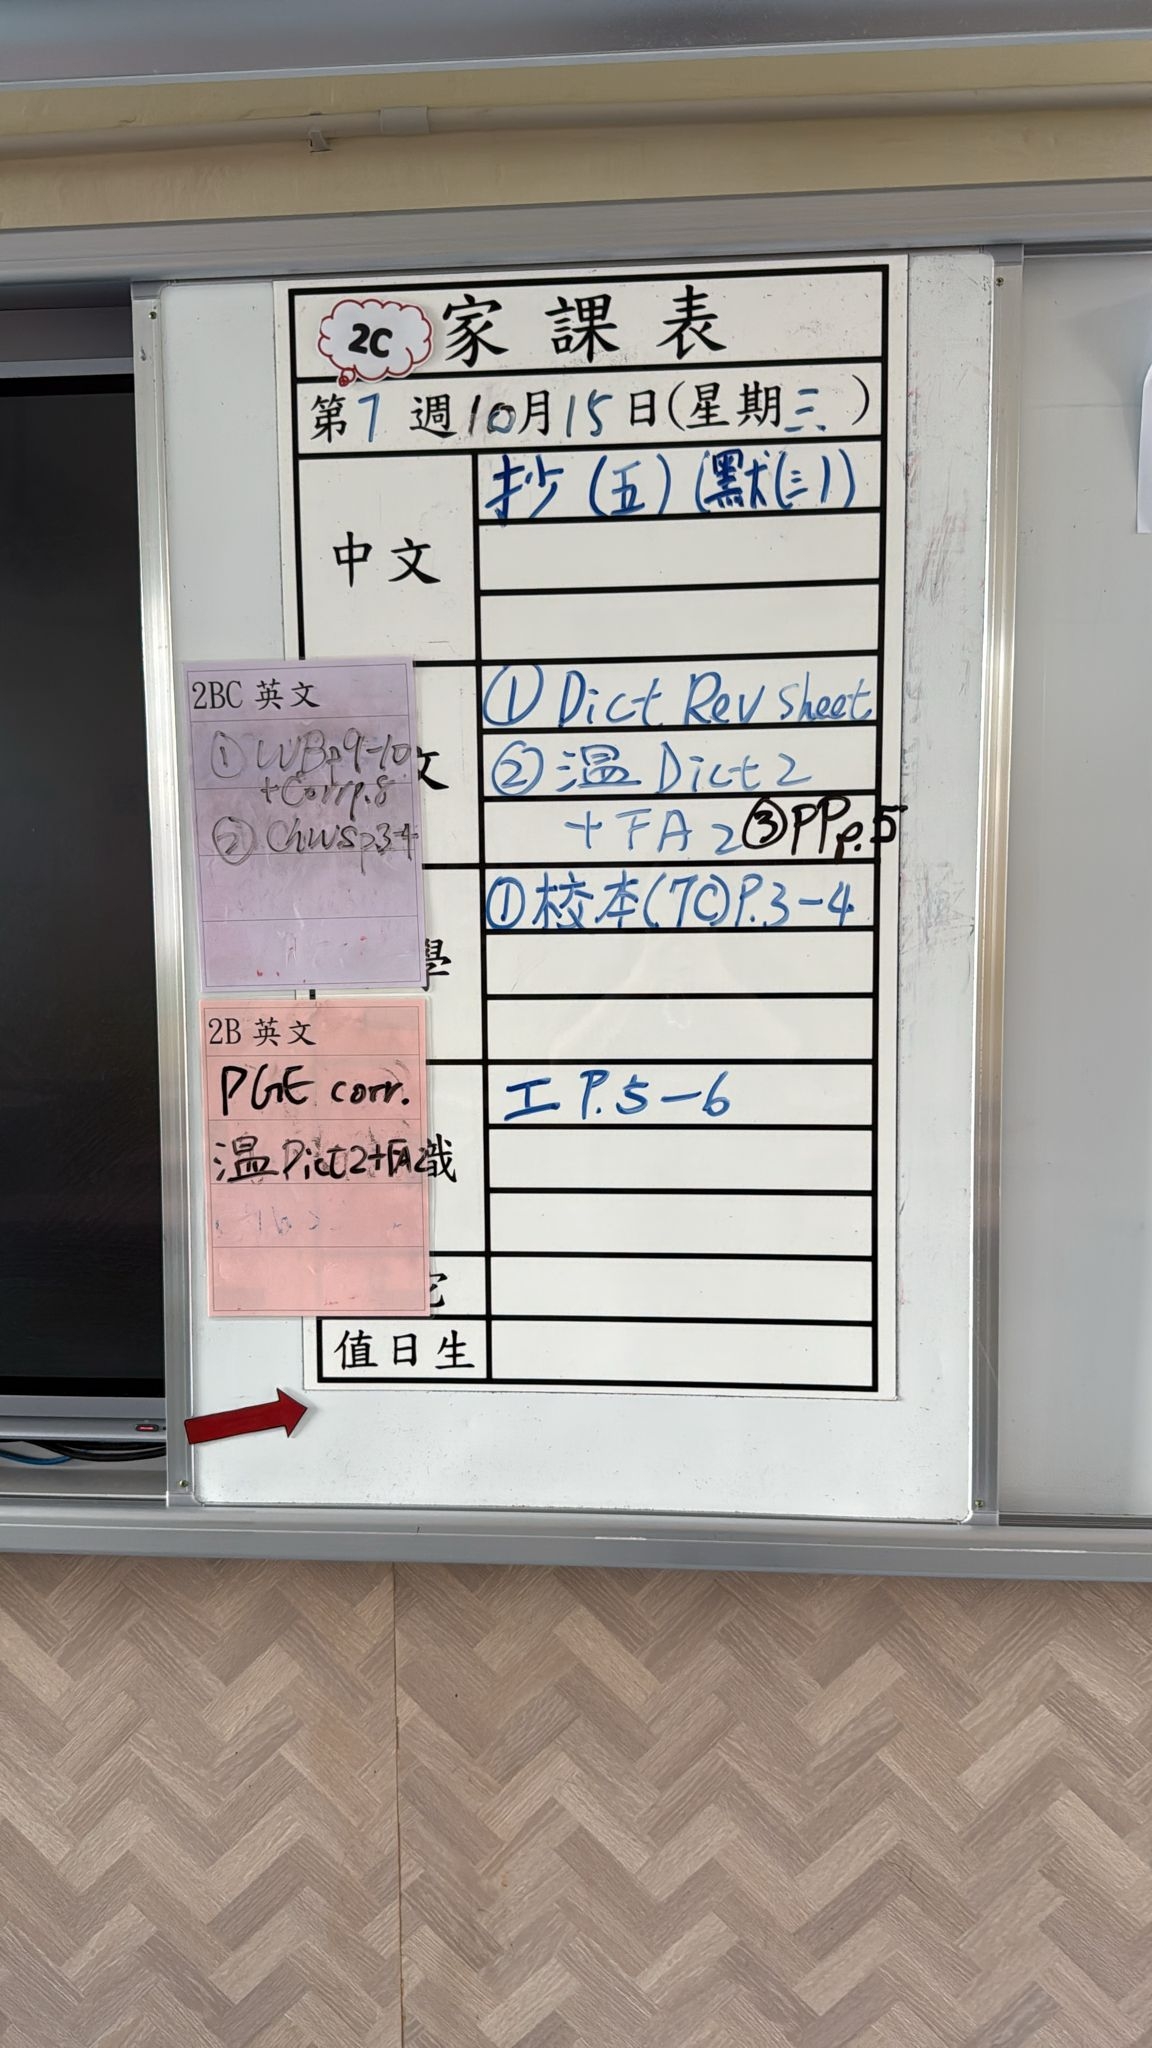 2C 家課表
第7週10月15日(星期三)
中文
抄(五)(默(三))
文
① Dict Rev sheet
② 溫 Dict 2
+ FA 2 ③PP p.5
學
① 校本(7C)P.3-4
識
工 P.5-6
它
值日生
2BC 英文
① WB p9-10
+Corr p.8
② ChWS p3-4
2B 英文
PGE corr.
溫 Dict2+FA2